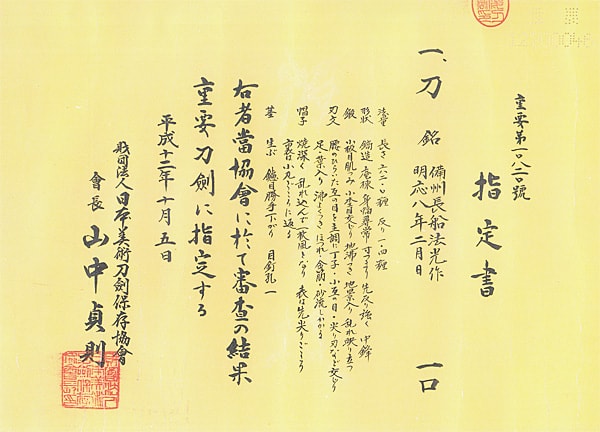 指定書
重要第一〇八二〇號
一、刀 銘 備州長船法光作 一口
明応八年二月日
法量 長さ 六二・〇糎 反り 一・四糎
形状 鎬造 庵棟 身幅尋常 寸つまり 先反り強く 中鋒
鍛 小板目肌つみ 小杢目交じり 地沸つき 地景入り 乱れ映り立つ
刃文 腰のひらいた互の目を主調に丁子・小互の目・尖り刃など交じり
足・葉入り 沸よくつき ほつれ・金筋・砂流しかかる
帽子 焼深く 乱れ込んで一枚風となり 表は先尖りごころ
裏は小丸ごころに返る
茎 生ぶ 鑢目勝手下がり 目釘孔一
右者當協會に於て審査の結果
重要刀劍に指定する
平成十二年十月五日
財団法人日本美術刀劍保存協會
會長 山中貞則